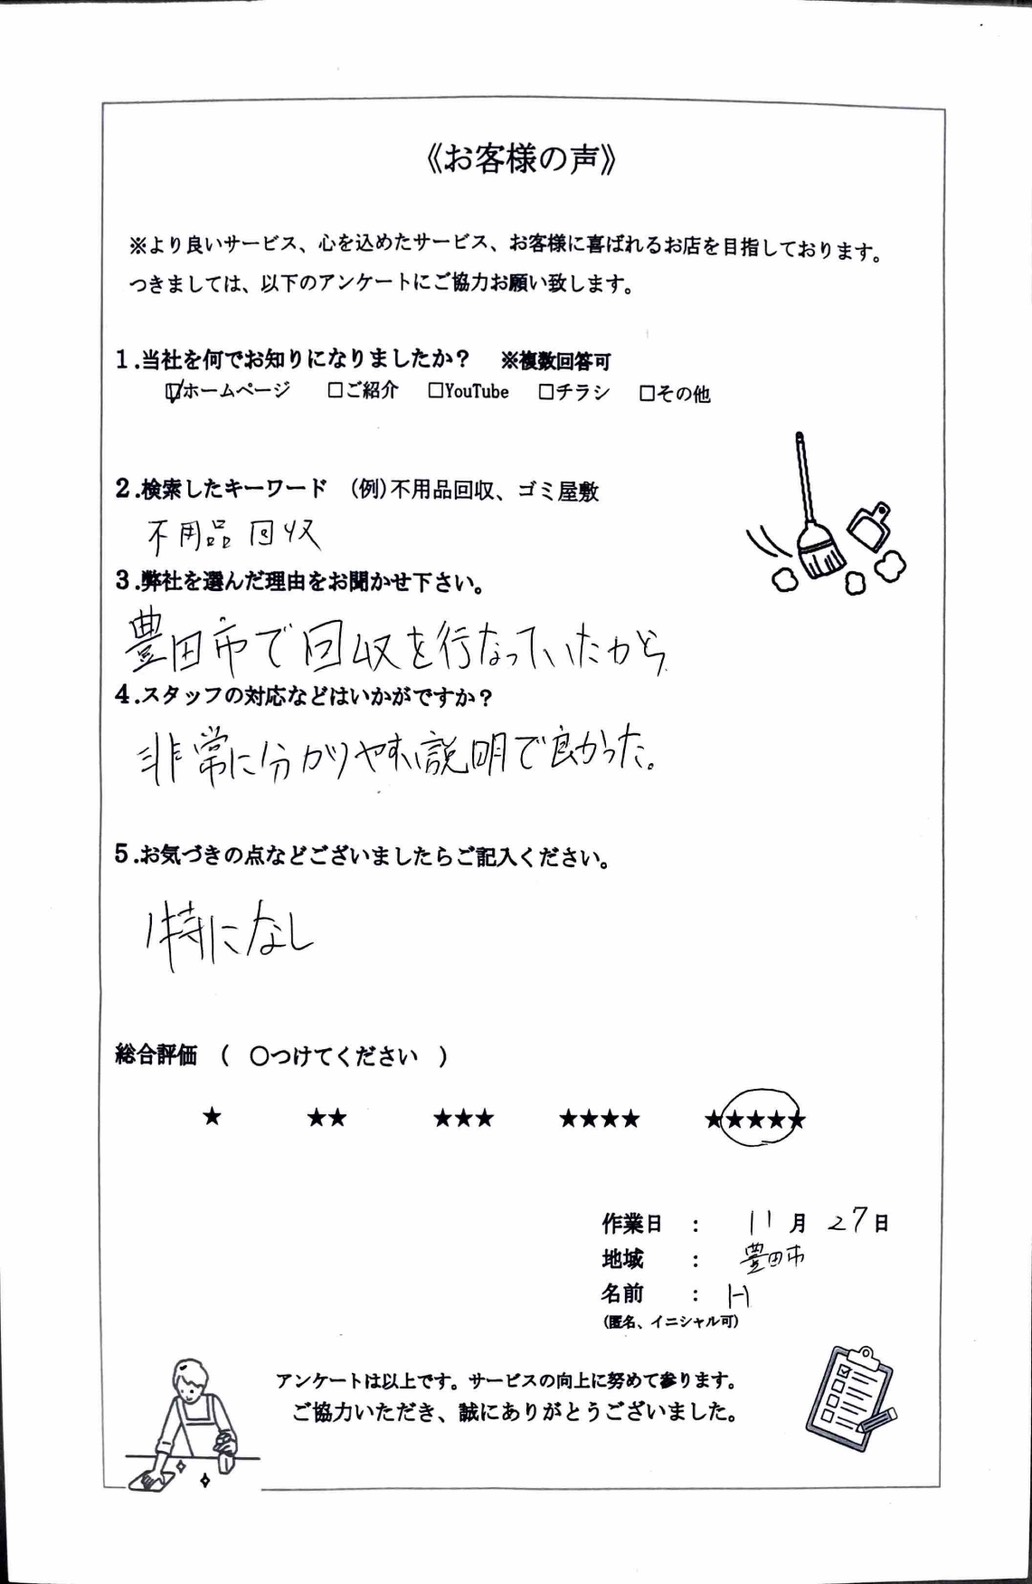 《お客様の声》
※より良いサービス、心を込めたサービス、お客様に喜ばれるお店を目指しております。
つきましては、以下のアンケートにご協力お願い致します。
1.当社を何でお知りになりましたか？ ※複数回答可
☑ホームページ □ご紹介 □YouTube □チラシ □その他
2.検索したキーワード (例)不用品回収、ゴミ屋敷
不用品回収
3.弊社を選んだ理由をお聞かせ下さい。
豊田市で回収を行なっていたから
4.スタッフの対応などはいかがですか？
非常に分かりやすい説明で良かった。
5.お気づきの点などございましたらご記入ください。
特になし
総合評価 ( ○つけてください )
★ ★★ ★★★ ★★★★ ★★★★★
作業日 : 11月27日
地域 : 豊田市
名前 : H
(匿名、イニシャル可)
アンケートは以上です。サービスの向上に努めて参ります。
ご協力いただき、誠にありがとうございました。